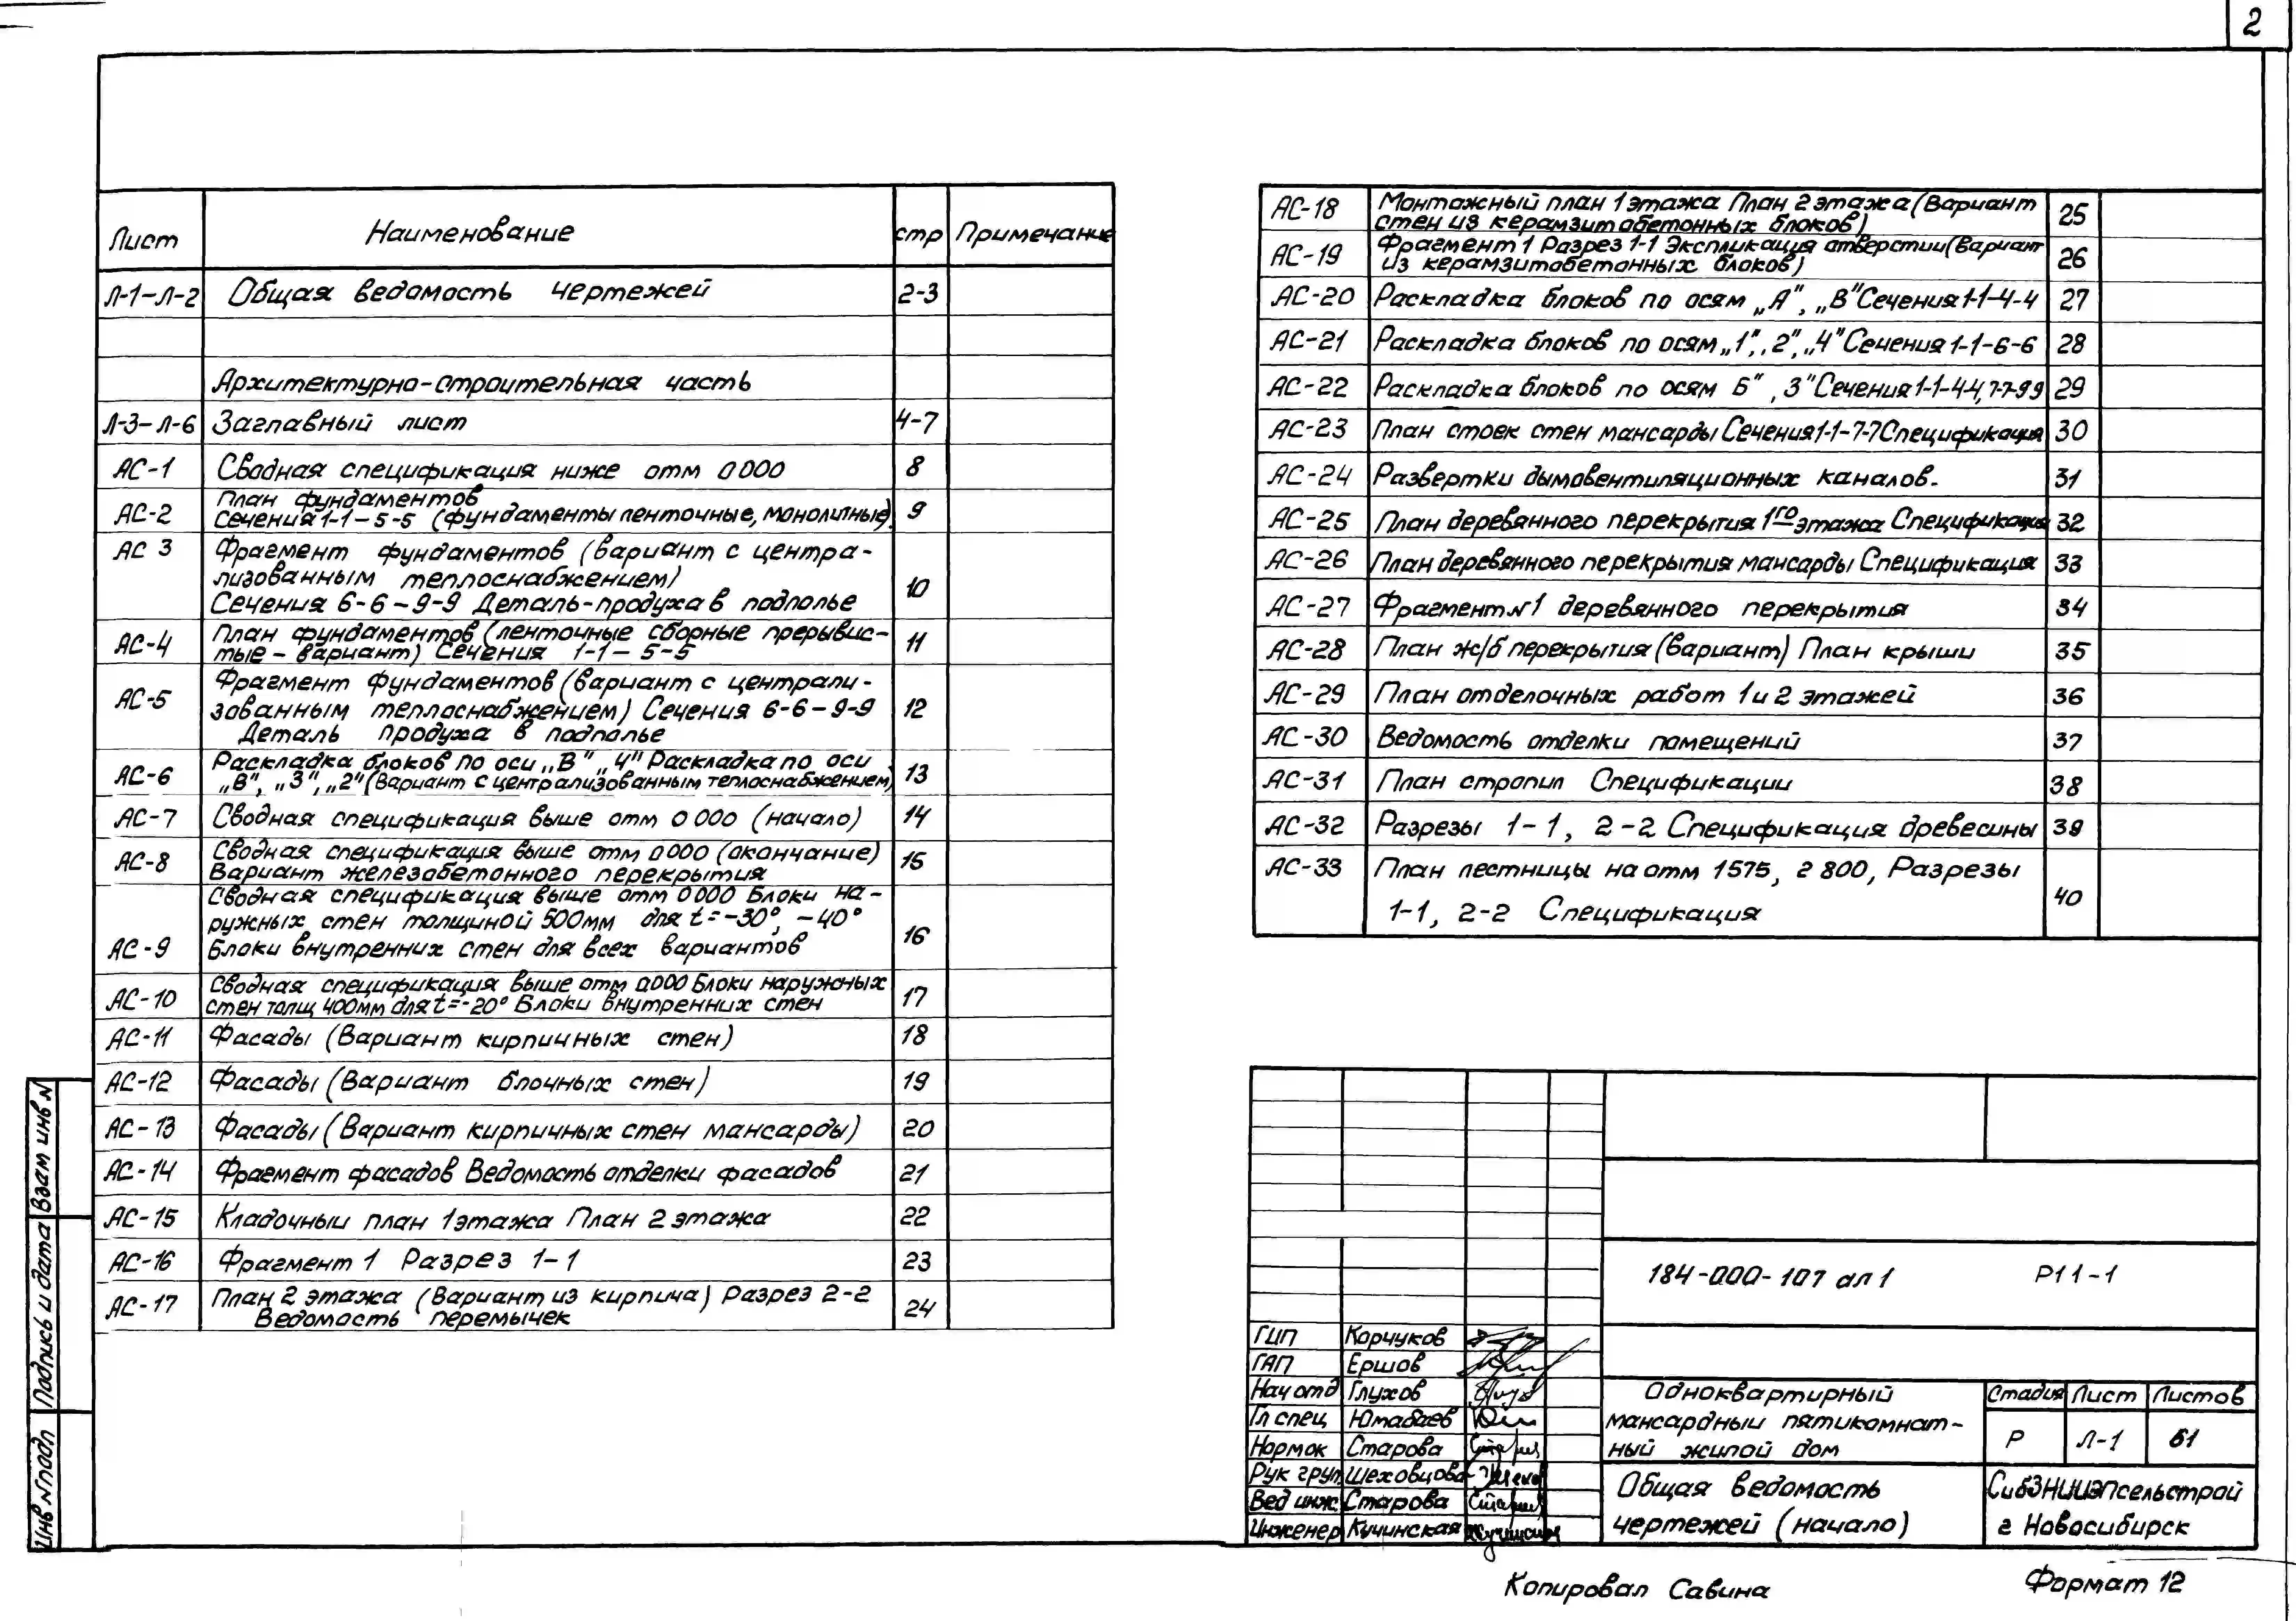 2
Лист Наименование стр Примечание
Л-1-Л-2 Общая ведомость чертежей 2-3
Архитектурно-строительная часть
Л-3-Л-6 Заглавный лист 4-7
АС-1 Сводная спецификация ниже отм 0 000 8
План фундаментов
АС-2 Сечения 1-1-5-5 (фундаменты ленточные, монолитные) 9
АС 3 Фрагмент фундаментов (вариант с центра-
лизованным теплоснабжением) 10
Сечения 6-6-9-9 Деталь-продуха в подполье
План фундаментов (ленточные сборные прерывис-
АС-4 тые-вариант) Сечения 1-1-5-5 11
Фрагмент фундаментов (вариант с централи-
АС-5 зованным теплоснабжением) Сечения 6-6-9-9 12
Деталь продуха в подполье
Раскладка блоков по оси „В" „4" Раскладка по оси
АС-6 „В", „3", „2" (Вариант с централизованным теплоснабжением) 13
АС-7 Сводная спецификация выше отм 0 000 (начало) 14
Сводная спецификация выше отм 0 000 (окончание)
АС-8 Вариант железобетонного перекрытия 15
Сводная спецификация выше отм 0 000 Блоки на-
ружных стен толщиной 500мм для t=-30°, -40°
АС-9 Блоки внутренних стен для всех вариантов 16
Сводная спецификация выше отм 0.000 Блоки наружных
АС-10 стен толщ 400мм для t=-20° Блоки внутренних стен 17
АС-11 Фасады (Вариант кирпичных стен) 18
АС-12 Фасады (Вариант блочных стен) 19
АС-13 Фасады (Вариант кирпичных стен мансарды) 20
АС-14 Фрагмент фасадов Ведомость отделки фасадов 21
АС-15 Кладочный план 1этажа План 2 этажа 22
АС-16 Фрагмент 1 Разрез 1-1 23
План 2 этажа (Вариант из кирпича) Разрез 2-2
АС-17 Ведомость перемычек 24
АС-18 Монтажный план 1этажа План 2 этажа (Вариант
стен из керамзитобетонных блоков) 25
АС-19 Фрагмент 1 Разрез 1-1 Экспликация отверстии (Вариант
из керамзитобетонных блоков) 26
АС-20 Раскладка блоков по осям „А", „В" Сечения 1-1-4-4 27
АС-21 Раскладка блоков по осям „1", „2", „4" Сечения 1-1-6-6 28
АС-22 Раскладка блоков по осям Б", 3" Сечения 1-1-4-4, 7-7-9 9 29
АС-23 План стоек стен мансарды Сечения 1-1-7-7 Спецификация 30
АС-24 Развертки дымовентиляционных каналов. 31
АС-25 План деревянного перекрытия 1го этажа Спецификация 32
АС-26 План деревянного перекрытия мансарды Спецификация 33
АС-27 Фрагмент N1 деревянного перекрытия 34
АС-28 План ж/б перекрытия (вариант) План крыши 35
АС-29 План отделочных работ 1 и 2 этажей 36
АС-30 Ведомость отделки помещений 37
АС-31 План стропил Спецификации 38
АС-32 Разрезы 1-1, 2-2 Спецификация древесины 39
АС-33 План лестницы на отм 1575, 2 800, Разрезы
1-1, 2-2 Спецификация 40
184-000-107 ал 1 Р11-1
ГИП Корчуков
ГАП Ершов
Нач отд Глухов
Гл спец Юмабаев
Нормок Старова
Рук груп Шеховцова
Вед инж Старова
Инженер Кучинская
Одноквартирный
мансардныи пятикомнат-
ный жилой дом
Стадия Лист Листов
Р Л-1 61
Общая ведомость
чертежей (начало)
СибЗНИИЭПсельстрой
г Новосибирск
Копировал Савина
Формат 12
Инв N подл Подпись и дата Взам инв N